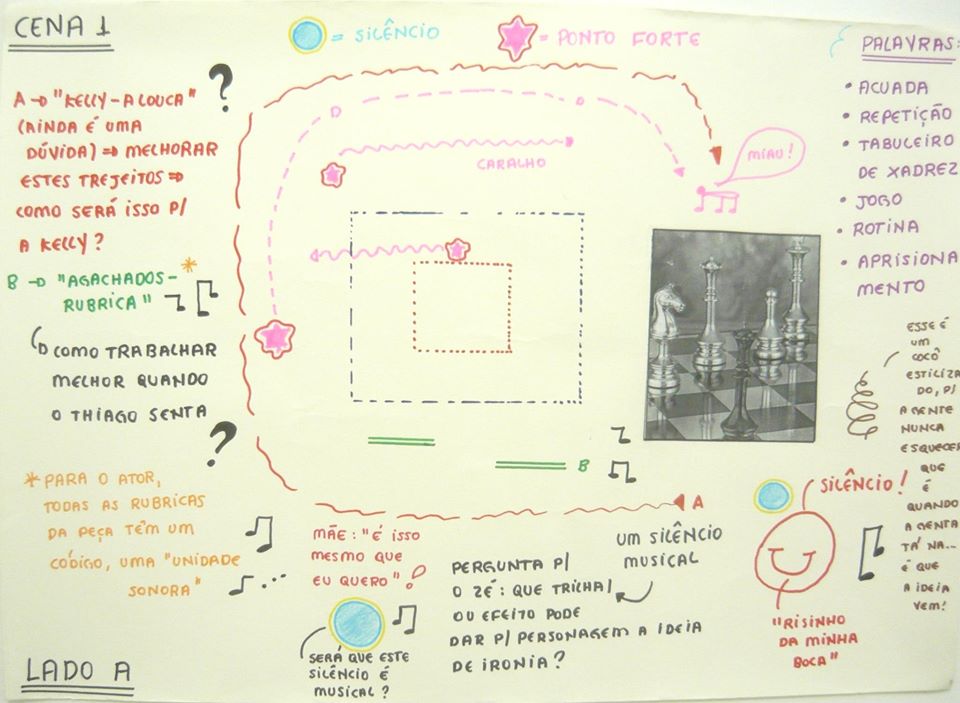 CENA 1
= SILÊNCIO
= PONTO FORTE
PALAVRAS:
• ACUADA
• REPETIÇÃO
• TABULEIRO
DE XADREZ
• JOGO
• ROTINA
• APRISIONA
MENTO
A → "KELLY - A LOUCA"
(AINDA É UMA
DÚVIDA) ⇒ MELHORAR
ESTES TREJEITOS ⇒
COMO SERÁ ISSO P/
A KELLY?
?
B → "AGACHADOS -
RUBRICA" *
COMO TRABALHAR
MELHOR QUANDO
O THIAGO SENTA
?
* PARA O ATOR,
TODAS AS RUBRICAS
DA PEÇA TÊM UM
CÓDIGO, UMA "UNIDADE
SONORA"
CARALHO
MIAU!
B
A
MÃE: "É ISSO
MESMO QUE
EU QUERO"
SERÁ QUE ESTE
SILÊNCIO É
MUSICAL?
UM SILÊNCIO
MUSICAL
PERGUNTA P/
O ZÉ: QUE TRILHA/
OU EFEITO PODE
DAR P/ PERSONAGEM A IDEIA
DE IRONIA?
SILÊNCIO!
"RISINHO
DA MINHA
BOCA"
ESSE É
UM
COCÔ
ESTILIZA
DO, P/
A GENTE
NUNCA
ESQUECER
QUE
É
QUANDO
A GENTA
TÁ NA...
É QUE
A IDEIA
VEM!
LADO A